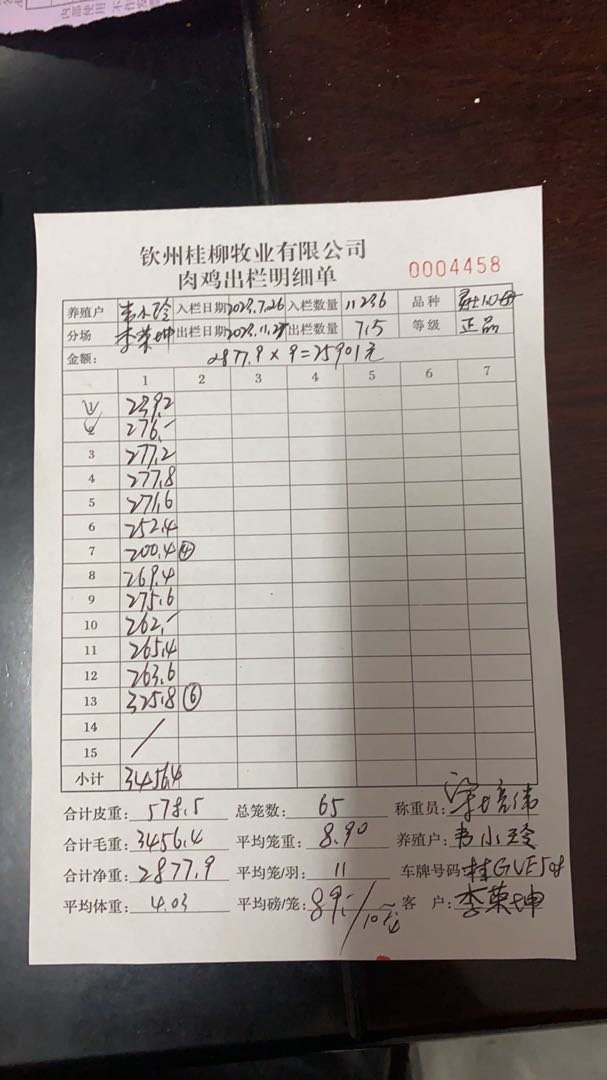 内部使用 不作
钦州桂柳牧业有限公司
肉鸡出栏明细单
0004458
养殖户 韦小玲 入栏日期 2023.7.26 入栏数量 11236 品种
分场 李荣坤 出栏日期 2023.11.27 出栏数量 715 等级 正品
金额: 2877.9 × 9 = 25901元
1 2 3 4 5 6 7
1 239.2
2 276.-
3 277.2
4 277.8
5 271.6
6 252.4
7 200.4 ④
8 269.4
9 275.6
10 262.-
11 265.4
12 263.6
13 325.8 ⑥
14 /
15
小计 3456.4
合计皮重: 578.5 总笼数: 65 称重员:
合计毛重: 3456.4 平均笼重: 8.90 养殖户: 韦小玲
合计净重: 2877.9 平均笼/羽: 11 车牌号码:
平均体重: 4.03 平均磅/笼: 89.- 客 户: 李荣坤